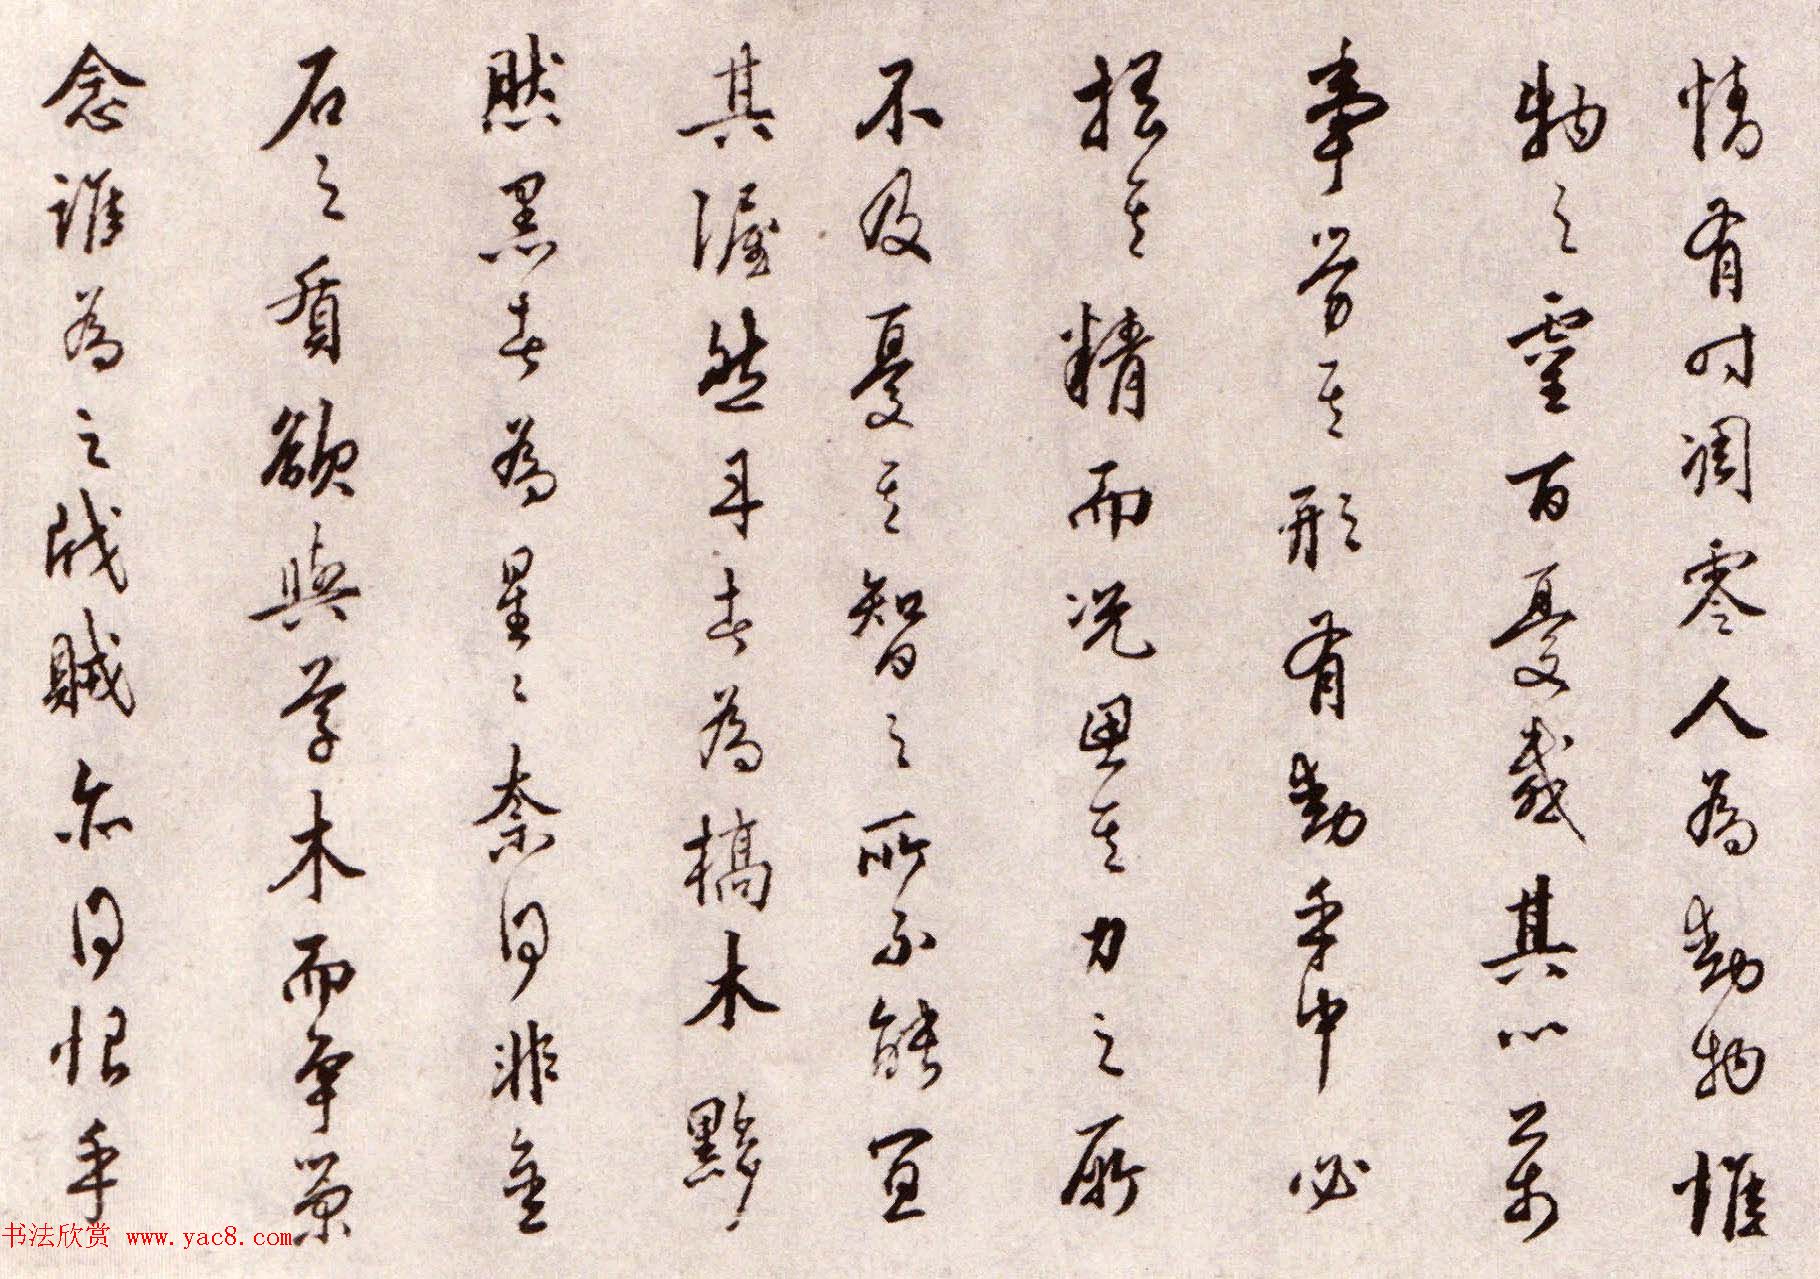 情有時凋零人為動物惟
物之靈百憂感其心萬
事勞其形有動乎中必
搖其精而況思其力之所
不及憂其智之所不能宜
其渥然丹者為槁木黟
然黑者為星〻奈何非金
石之質欲與草木而爭榮
念誰為之戕賊亦何恨乎
书法欣赏 www.yac8.com